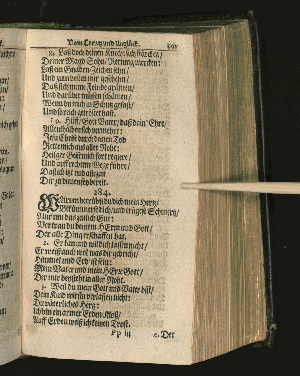 Vom Creutz und Unglück.
8. Laß doch deinen Knecht sich stärcken/
Deiner Magd Sohn/ Rettung mercken:
Laß ein Gnaden-Zeichen sehn/
Und zum besten mir geschehn/
Daß sich meine Feinde
Und darüber müssen schämen/
Wenn du mich so sanfft
Und so reich getröstet hast.
9. Hilff/ Gott Vater/ daß dein Ehre/
Allenthalben sich vermehre:
Jesu Christ durch deinen Tod
Rette mich aus aller Noht:
Heilger Geist mich fort regiere/
Und auff rechtem Wege führe/
Daß ich itzt und allezeit
Dir zu dienen sey bereit.
284.
Warum betrübst du dich mein Hertz/
Bekümmerst dich/ und trägest Schmertz/
Nur um das zeitlich Gut:
Vertrau du deinem HErrn und Gott/
Der alle Ding erschaffen hat.
2. Er kan und wil dich lassen nicht/
Er weiß auch wol was dir gebricht/
Himmel und Erd ist sein:
Mein Vater und mein HErre Gott/
Der mir beysteht in aller Noht.
3. Weil du mein Gott und Vater bist/
Dein Kind wirstu verlassen nicht:
Du väterliches Hertz:
Ich bin ein armer Erden-Kloß/
Auff Erden weiß ich keinen Trost.
Pp iij 4. Der